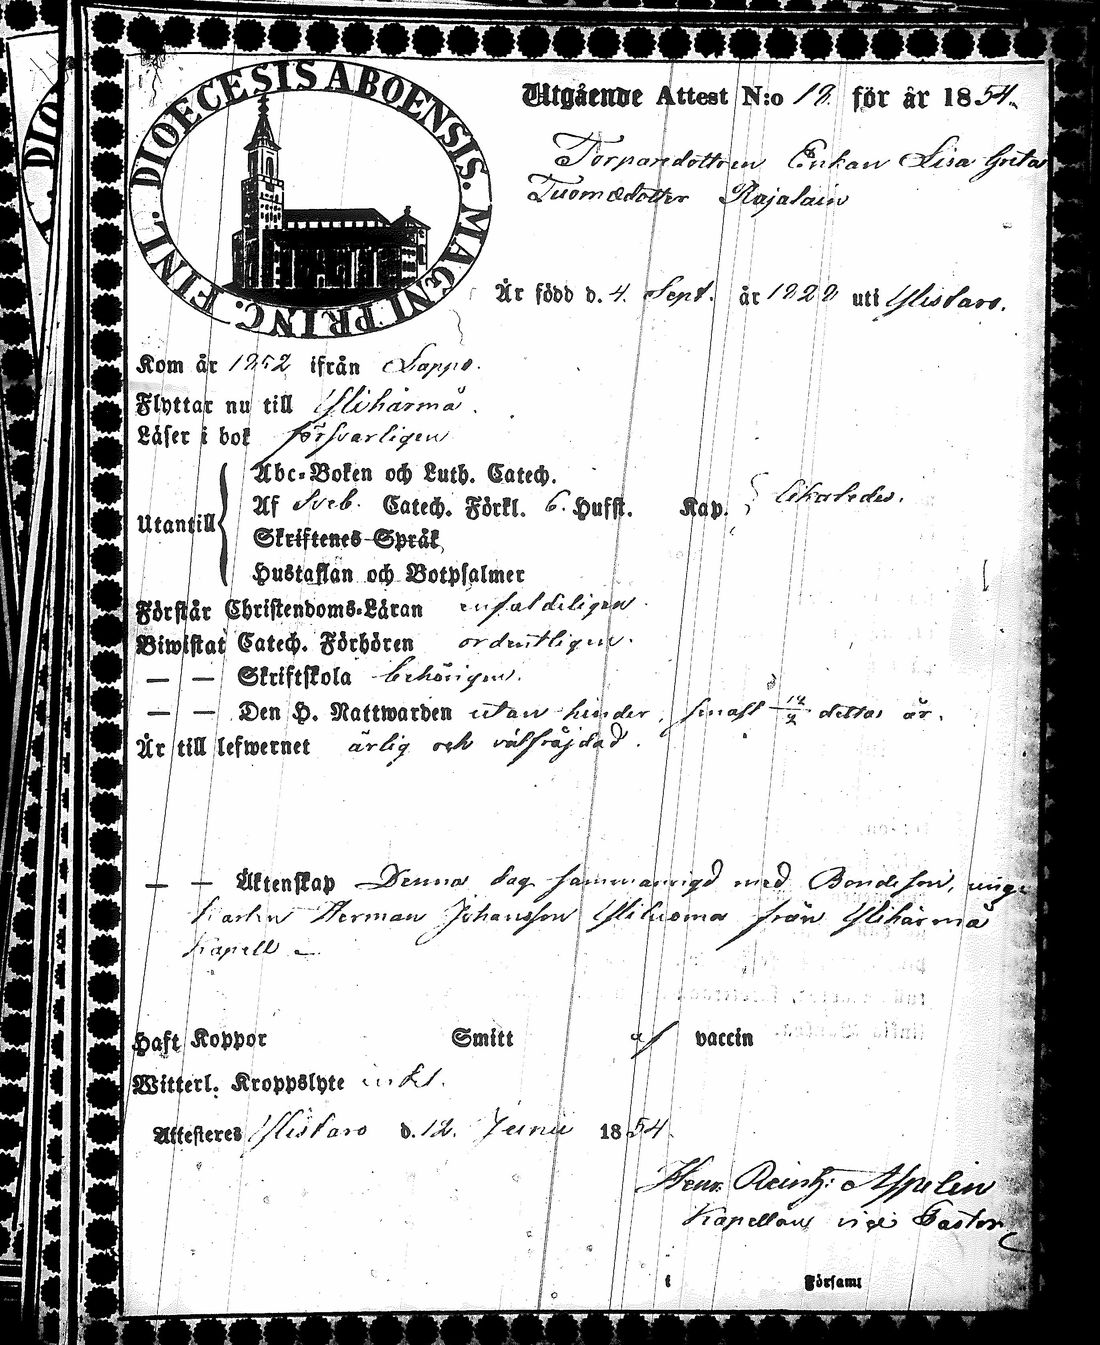 DIOECESIS ABOENSIS. MAGNI PRINC. FINL.
Utgående Attest N:o 18 för år 1854.
Torparedottren Enkan Lisa Greta
Tuomædotter Rajalain
Är född d. 4. Sept. år 1828 uti Ylistaro.
Kom år 1852 ifrån Lappo.
Flyttar nu till Ylihärmä.
Läser i bok försvarligen
Abc-Boken och Luth. Catech.
Utantill Af Sveb. Catech. Förkl. 6. Hufst. Kap. likaledes.
Skriftenes Språk
Hustaflan och Botpsalmer
Förstår Christendoms-Läran enfaldeligen.
Biwistat Catech. Förhören ordentligen.
— — Skriftskola behörigen.
— — Den H. Nattwarden utan hinder, senast detta år.
Är till lefwernet ärlig och välfräjdad.
— — Äktenskap Denna dag sammanvigd med Bondeson, unge
karlen Herman Johansson Yliluoma från Ylihärmä
Kapell —
Haft Koppor Smitt af vaccin
Witterl. Kroppslyte intet.
Attesteras Ylistaro d. 12. Junii 1854.
Henr. Reinh: Aspelin
Kapellan vice Pastor
i Församl